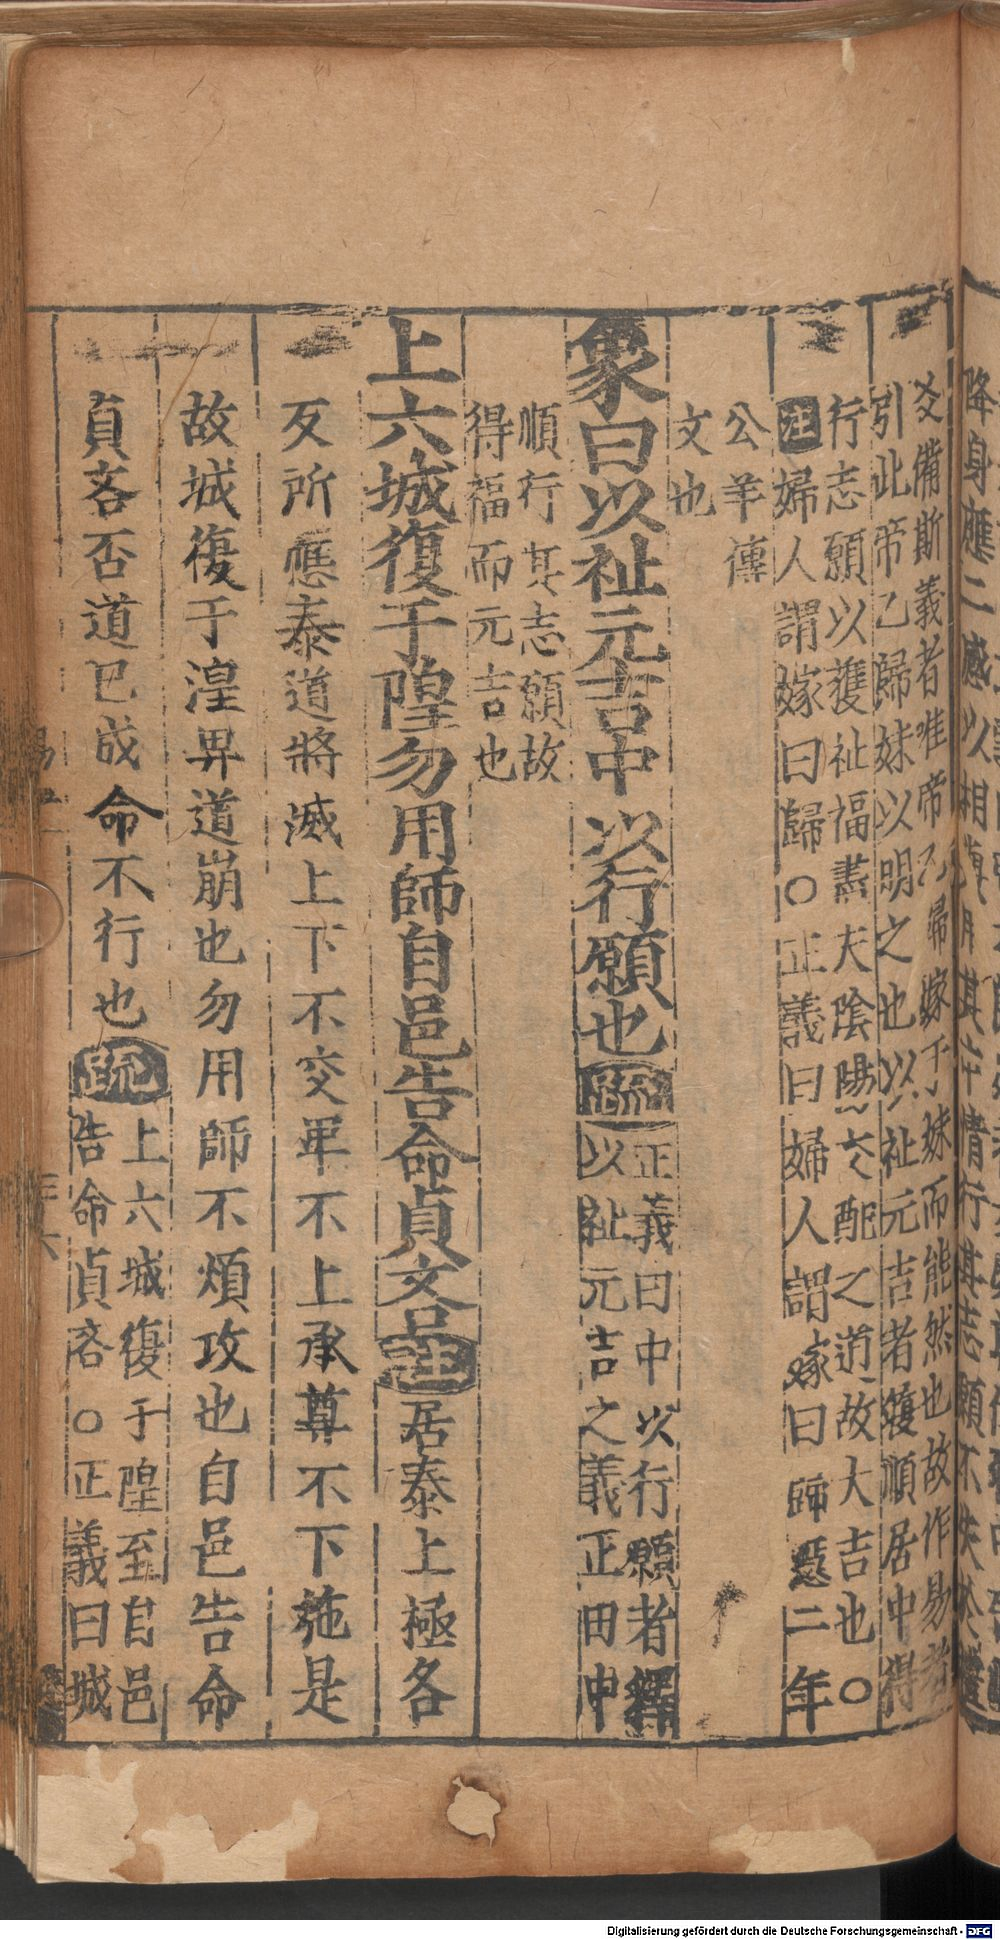 降身應二感以相與用其中情行其志願不失於禮
爻備斯義者唯帝乙歸嫁于妹而能然也故作易者
引此帝乙歸妹以明之也以祉元吉者履順居中得
行志願以獲祉福盡夫陰陽交配之道故大吉也○
注婦人謂嫁曰歸○正義曰婦人謂嫁曰歸隱二年
公羊傳
文也
象曰以祉元吉中以行願也疏
正義曰中以行願者釋
以祉元吉之義正田中
順行其志願故
得福而元吉也
上六城復于隍勿用師自邑告命貞吝注居泰上極各
反所應泰道將滅上下不交卑不上承尊不下施是
故城復于湟卑道崩也勿用師不煩攻也自邑告命
貞吝否道巳成命不行也疏
上六城復于隍至自邑
告命貞吝○正義曰城
Digitalisierung gefördert durch die Deutsche Forschungsgemeinschaft - DFG